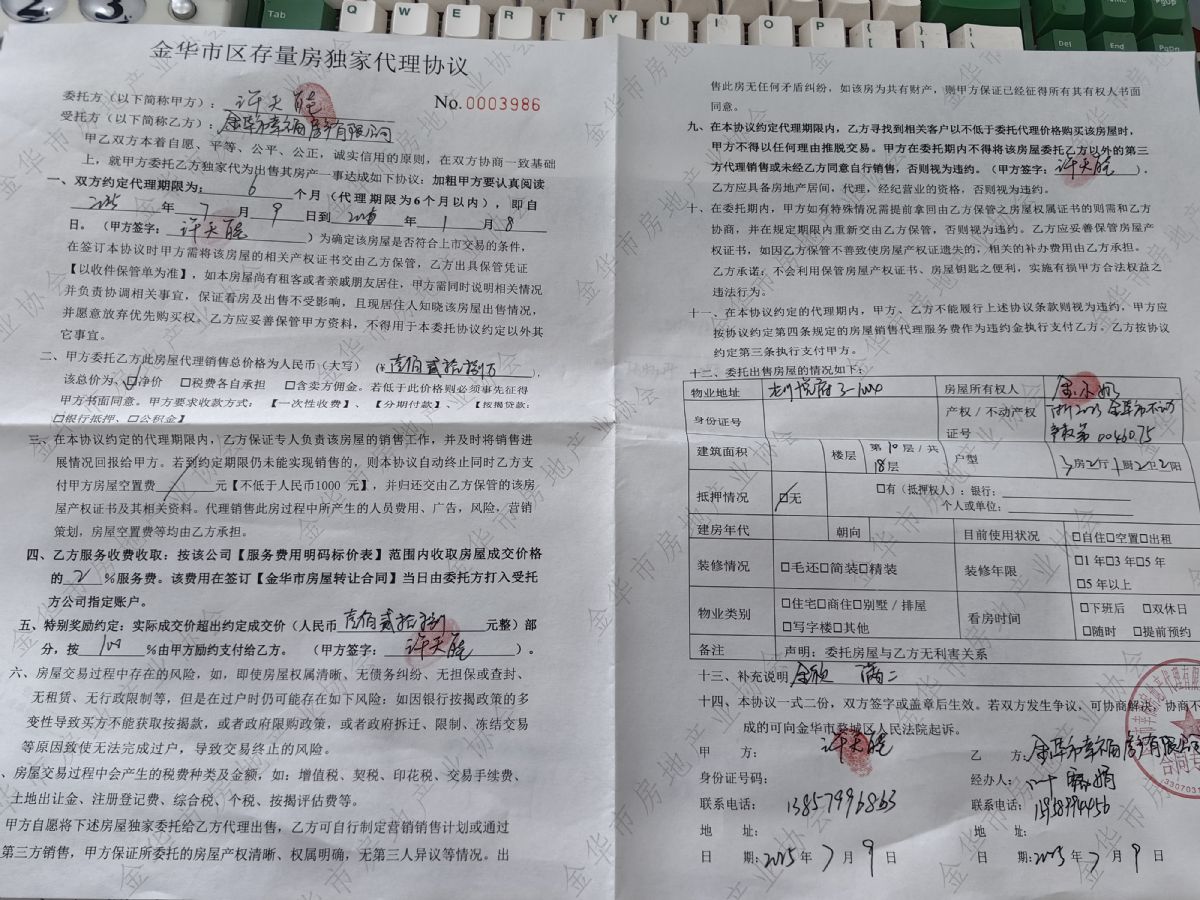 金华市区存量房独家代理协议
No. 0003986
委托方（以下简称甲方）：许天能
受托方（以下简称乙方）：金华市幸福房产有限公司
甲乙双方本着自愿、平等、公平、公正，诚实信用的原则，在双方协商一致基础
上，就甲方委托乙方独家代为出售其房产一事达成如下协议：加粗甲方要认真阅读
一、双方约定代理期限为： 6 个月（代理期限为6个月以内），即自
2025 年 7 月 9 日到 年 1 月 8
日。（甲方签字： 许天能 ）为确定该房屋是否符合上市交易的条件，
在签订本协议时甲方需将该房屋的相关产权证书交由乙方保管，乙方出具保管凭证
【以收件保管单为准】，如本房屋尚有租客或者亲戚朋友居住，甲方需同时说明相关情况
并负责协调相关事宜，保证看房及出售不受影响，且现居住人知晓该房屋出售情况，
并愿意放弃优先购买权。乙方应妥善保管甲方资料，不得用于本委托协议约定以外其
它事宜。
二、甲方委托乙方此房屋代理销售总价格为人民币（大写）（¥ 壹佰贰拾捌万 ），
该总价为、☑净价 □税费各自承担 □含卖方佣金。若低于此价格则必须事先征得
甲方书面同意。甲方要求收款方式：【一次性收费】、【分期付款】、【按揭贷款：
□银行抵押、□公积金】
三、在本协议约定的代理期限内，乙方保证专人负责该房屋的销售工作，并及时将销售进
展情况回报给甲方。若到约定期限仍未能实现销售的，则本协议自动终止同时乙方支
付甲方房屋空置费 / 元【不低于人民币1000 元】，并归还交由乙方保管的该房
屋产权证书及其相关资料。代理销售此房过程中所产生的人员费用、广告，风险，营销
策划，房屋空置费等均由乙方承担。
四、乙方服务收费收取：按该公司【服务费用明码标价表】范围内收取房屋成交价格
的 2 %服务费。该费用在签订【金华市房屋转让合同】当日由委托方打入受托
方公司指定账户。
五、特别奖励约定：实际成交价超出约定成交价（人民币 壹佰贰拾捌万 元整）部
分，按 100 %由甲方励约支付给乙方。 （甲方签字： 许天能 ）。
六、房屋交易过程中存在的风险，如，即使房屋权属清晰、无债务纠纷、无担保或查封、
无租赁、无行政限制等，但是在过户时仍可能存在如下风险：如因银行按揭政策的多
变性导致买方不能获取按揭款，或者政府限购政策，或者政府拆迁、限制、冻结交易
等原因致使无法完成过户，导致交易终止的风险。
、房屋交易过程中会产生的税费种类及金额，如：增值税、契税、印花税、交易手续费、
土地出让金、注册登记费、综合税、个税、按揭评估费等。
甲方自愿将下述房屋独家委托给乙方代理出售，乙方可自行制定营销销售计划或通过
第三方销售，甲方保证所委托的房屋产权清晰、权属明确，无第三人异议等情况。出
售此房无任何矛盾纠纷，如该房为共有财产，则甲方保证已经征得所有其有权人书面
同意。
九、在本协议约定代理期限内，乙方寻找到相关客户以不低于委托代理价格购买该房屋时，
甲方不得以任何理由推脱交易。甲方在委托期内不得将该房屋委托乙方以外的第三
方代理销售或未经乙方同意自行销售，否则视为违约。（甲方签字： 许天能 ），
乙方应具备房地产居间，代理，经纪营业的资格，否则视为违约。
十、在委托期内，甲方如有特殊情况需提前拿回由乙方保管之房屋权属证书的则需和乙方
协商，并在规定期限内重新交由乙方保管，否则视为违约。乙方应妥善保管房屋产
权证书，如因乙方保管不善致使房屋产权证遗失的，相关的补办费用由乙方承担。
乙方承诺：不会利用保管房屋产权证书、房屋钥匙之便利，实施有损甲方合法权益之
违法行为。
十一、在本协议约定的代理期内，甲方、乙方不能履行上述协议条款则视为违约，甲方应
按协议约定第四条规定的房屋销售代理服务费作为违约金执行支付乙方，乙方按协议
约定第三条执行支付甲方。
十二、委托出售房屋的情况如下：
物业地址 悦府 3-1000 房屋所有权人 金
身份证号 产权／不动产权证号 浙2023金华市不动产权第0046075
建筑面积 楼层 第10层／共18层 户型 3房2厅1厨2卫2阳
抵押情况 ☑无 □有（抵押权人）：银行：
个人或单位：
建房年代 朝向 目前使用状况 □自住□空置□出租
装修情况 □毛还□简装□精装 装修年限 □1年□3年□5年
□5年以上
物业类别 □住宅□商住□别墅／排屋
□写字楼□其他 看房时间 □下班后 □双休日
□随时 □提前预约
备注 声明：委托房屋与乙方无利害关系
十三、补充说明 满二
十四、本协议一式二份，双方签字或盖章后生效。若双方发生争议，可协商解决，协商不
成的可向金华市婺城区人民法院起诉。
甲 方： 许天能
身份证号码：
联系电话： 13857996863
地 址：
日 期：2025 年 7 月 9 日
乙 方：金华市幸福房产有限公司
经办人： 叶丽娟
联系电话：15958994456
地 址：
日 期：2025 年 7 月 9 日